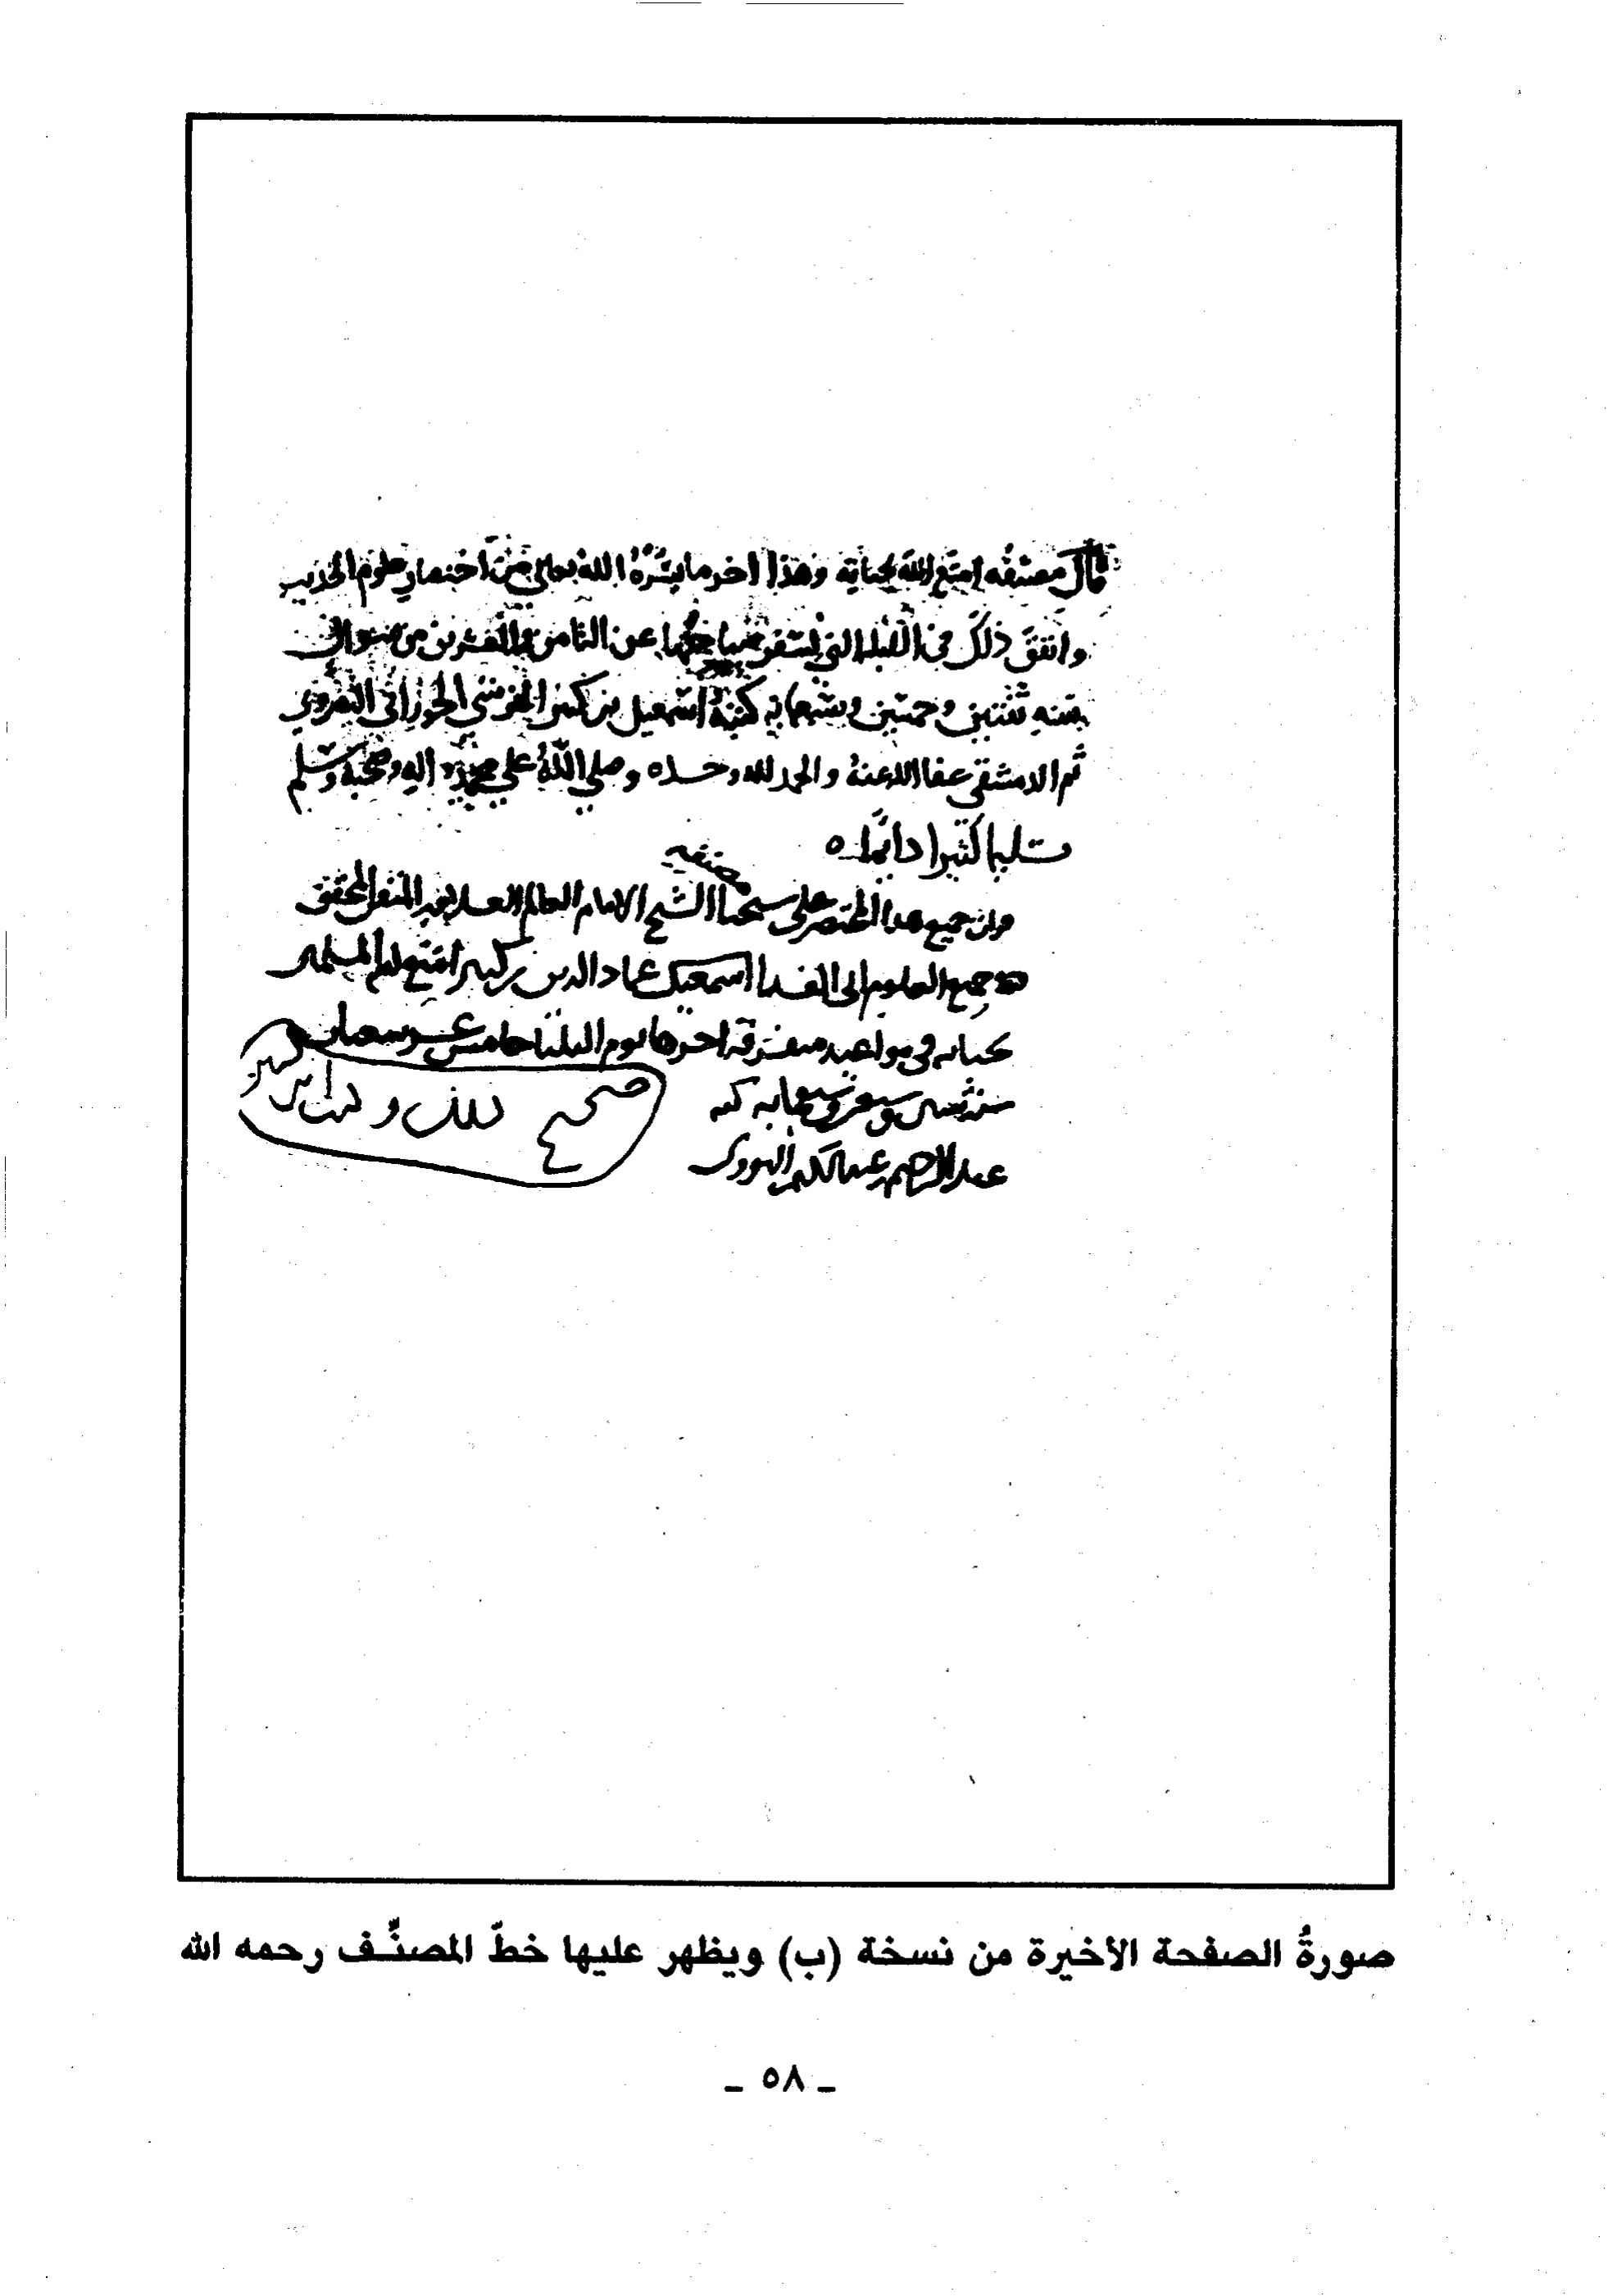 قال مصنفه امتع الله بحياته وهذا اخر ما يسّره الله تعالى من اختصار علوم الحديث
واتفق ذلك في الليلة التي يسفر صباحها عن الثامن والعشرين من شوال
سنه ثنتين وخمسين وسبعمايه كتبه اسمعيل بن كثير القرشي
ثم الدمشقي عفا الله عنه والحمد لله وحده وصلى الله على محمد واله وصحبه وسلم
تسليما كثيرا دايما
قرات جميع هذا المختصر على مصنفه شيخنا الشيخ الامام العالم العلامة المحقق
جميع العلوم ابي الفدا اسمعيل عماد الدين بن كثير امتع الله المسلمين
بحياته في مواعيد متفرقه اخرها يوم الثلثا خامس عشر شعبان
سنه وسبعمايه كتبه
صحيح ذلك وكتب ابن كثير
عبد الرحيم
صورةُ الصفحة الأخيرة من نسخة (ب) ويظهر عليها خطّ المصنِّف رحمه الله
ـ ٥٨ ـ